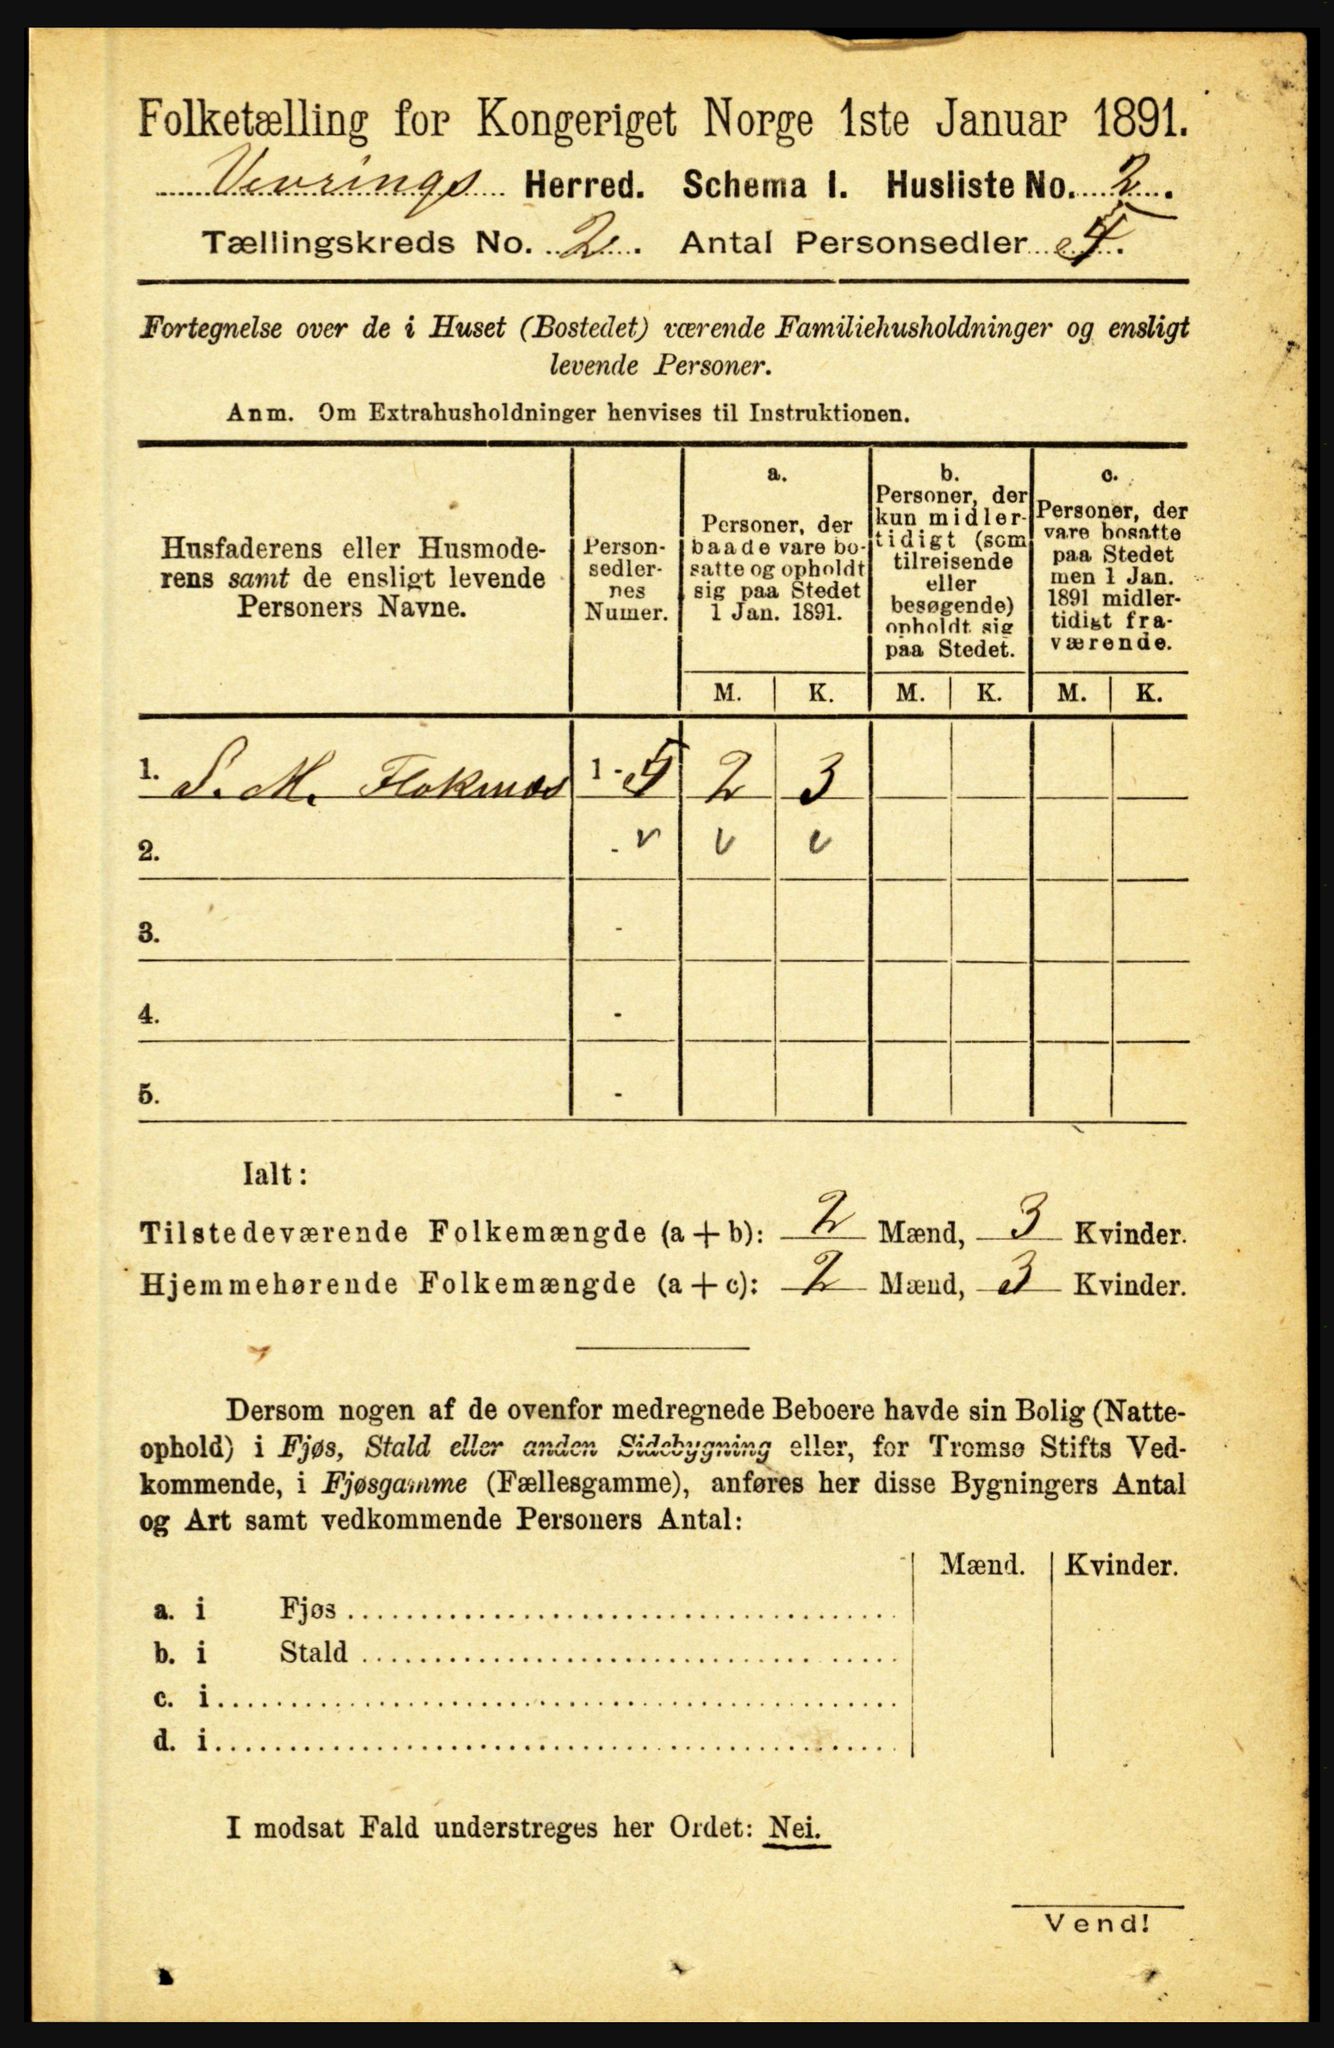 Folketælling for Kongeriget Norge 1ste Januar 1891.
Vevrings Herred. Schema I. Husliste No. 2.
Tællingskreds No. 2. Antal Personsedler 5.
Fortegnelse over de i Huset (Bostedet) værende Familiehusholdninger og ensligt
levende Personer.
Anm. Om Extrahusholdninger henvises til Instruktionen.
Husfaderens eller Husmode-
rens samt de ensligt levende
Personers Navne.
Person-
sedler-
nes
Numer.
a.
Personer, der
baade vare bo-
satte og opholdt
sig paa Stedet
1 Jan. 1891.
b.
Personer, der
kun midler-
tidigt (som
tilreisende
eller
besøgende)
opholdt sig
paa Stedet.
c.
Personer, der
vare bosatte
paa Stedet
men 1 Jan.
1891 midler-
tidigt fra-
værende.
M. K. M. K. M. K.
1. S. M. Floknæs 1 - 5 2 3
2. - v v v
3. -
4. -
5. -
Ialt:
Tilstedeværende Folkemængde (a + b): 2 Mænd, 3 Kvinder.
Hjemmehørende Folkemængde (a + c): 2 Mænd, 3 Kvinder.
Dersom nogen af de ovenfor medregnede Beboere havde sin Bolig (Natte-
ophold) i Fjøs, Stald eller anden Sidebygning eller, for Tromsø Stifts Ved-
kommende, i Fjøsgamme (Fællesgamme), anføres her disse Bygningers Antal
og Art samt vedkommende Personers Antal:
Mænd. Kvinder.
a. i Fjøs
b. i Stald
c. i
d. i
I modsat Fald understreges her Ordet: Nei.
Vend!